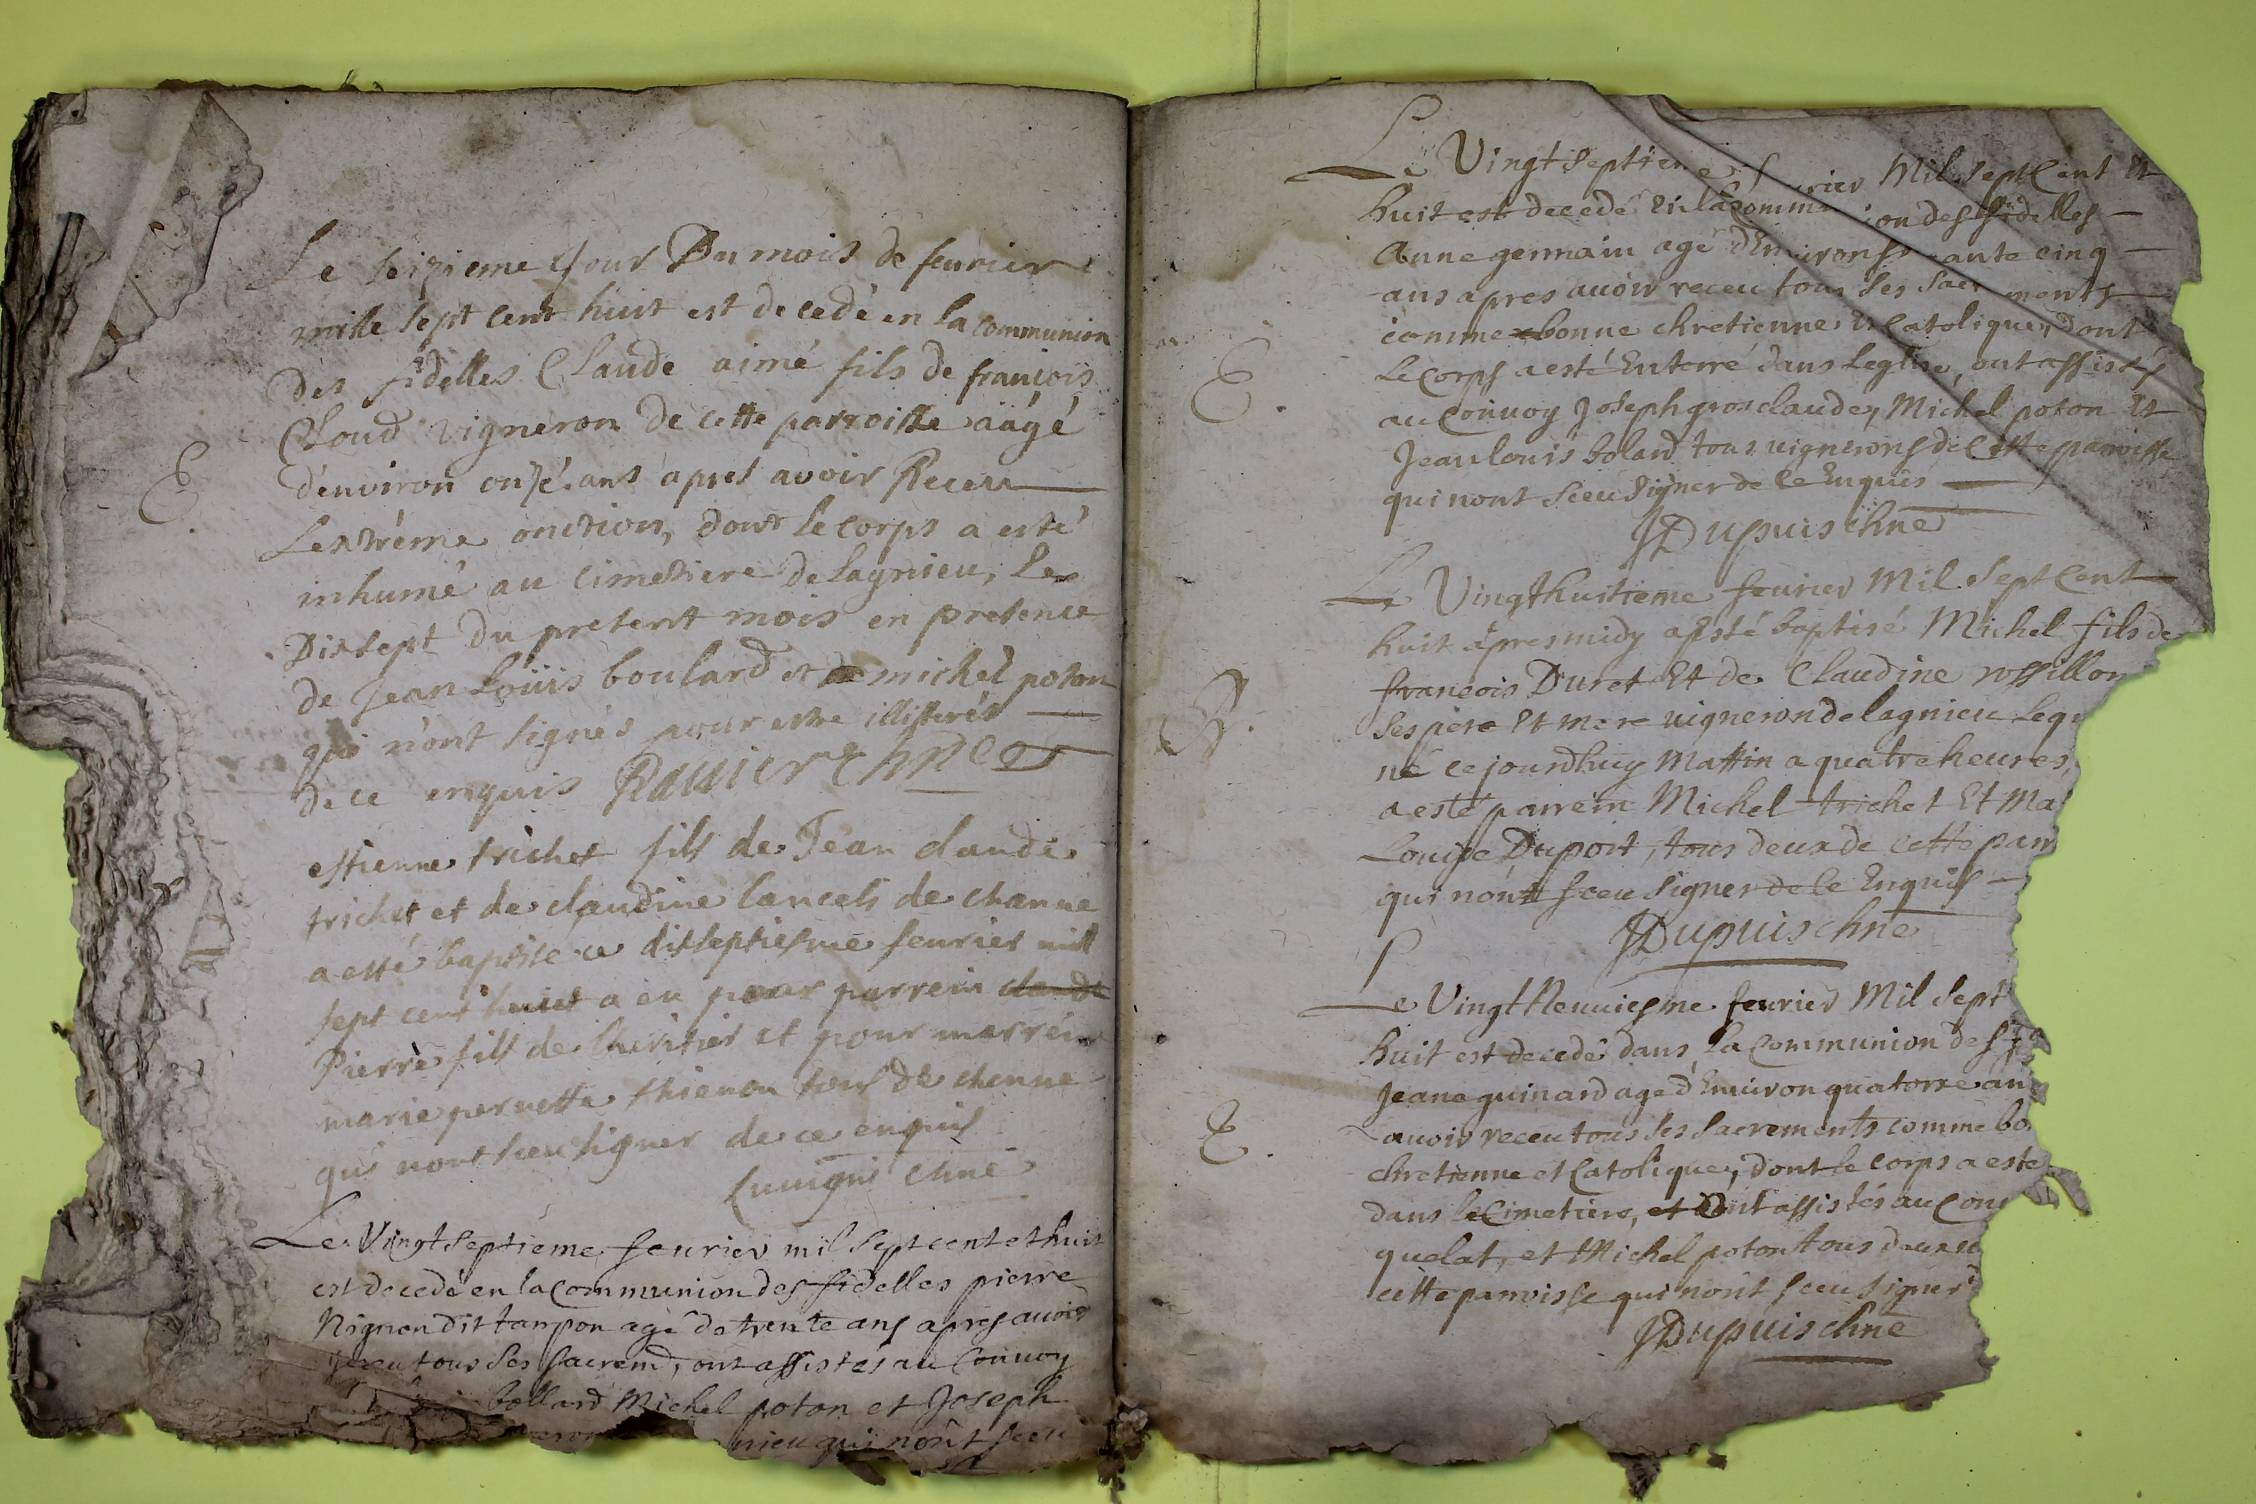 Le seizieme Jour Du mois de feurier
mille sept cent huit est decedé en la communion
des fidelles Claude aimé fils de françois
Cloud vigneron de cette parroisse aâgé
d'enuiron onze ans apres avoir Receu
L'extrême onction, dont le corps a esté
E.
inhumé au cimetiere de lagnieu, le
Dixsept du present mois en presence
de Jean Loüis boulard et de michel poton
qui n'ont signés pour estre illitterés
de ce enquis Rauier chne
estienne trichet fils de Jean claude
trichet et de claudine lancels de channe
a esté baptisé ce dixseptiesme feurier mil
sept cent huict a eu pour parrein claude
Pierre fils de lheritier et pour marreine
marie pernette thienon tous de channe
qui nont sceu signer de ce enquis
chne
Le Vingtseptieme feurier mil sept cent et huit
est decedé en la Communion des fidelles pierre
Nignon dit tampon agé de trente ans apres auoir
receu tous ses sacremts, ont assistés au Conuoy
bollard Michel poton et Joseph
nieu qui nont sceu
Le Vingtseptieme feurier Mil sept Cent Et
huit est decedé En la Communion des fidelles
Anne germain agé d'Enuiron cinq
ans apres auoir receu tous ses sacrements
comme bonne chretienne Et Catolique, dont
Le Corps a esté Enterré dans Leglise, ont assistés
E.
au Conuoy Joseph grosclaude, Michel poton Et
Jean louis bolard tous uignerons de Cette parroisse
qui nont sceu signer de Ce Enquis
JDupuis chne
Le Vingthuitieme feurier Mil Sept Cent
huit apresmidy a Esté baptisé Michel fils de
francois Duret Et de Claudine rossillon
B.
Ses pere Et mere uigneron de lagnieu Lequ
né cejourdhuy Mattin a quatre heures,
a esté parrein Michel trichet Et Ma
Louise Duport, tous deux de cette parr
qui nont sceu signer de Ce Enquis
JDupuis chne
Le VingtNeuuiesme feurier Mil Sept
huit est decedé dans La Communion des
Jeane guinard agé d'Enuiron quatorze an
E.
auoir receu tous ses sacrements comme bo
chretienne et Catolique, dont le corps a esté
dans le Cimetiere, et Ont assistés au Con
quelat, et Michel poton tous deux
cette parroisse qui nont sceu signer d
JDupuis chne